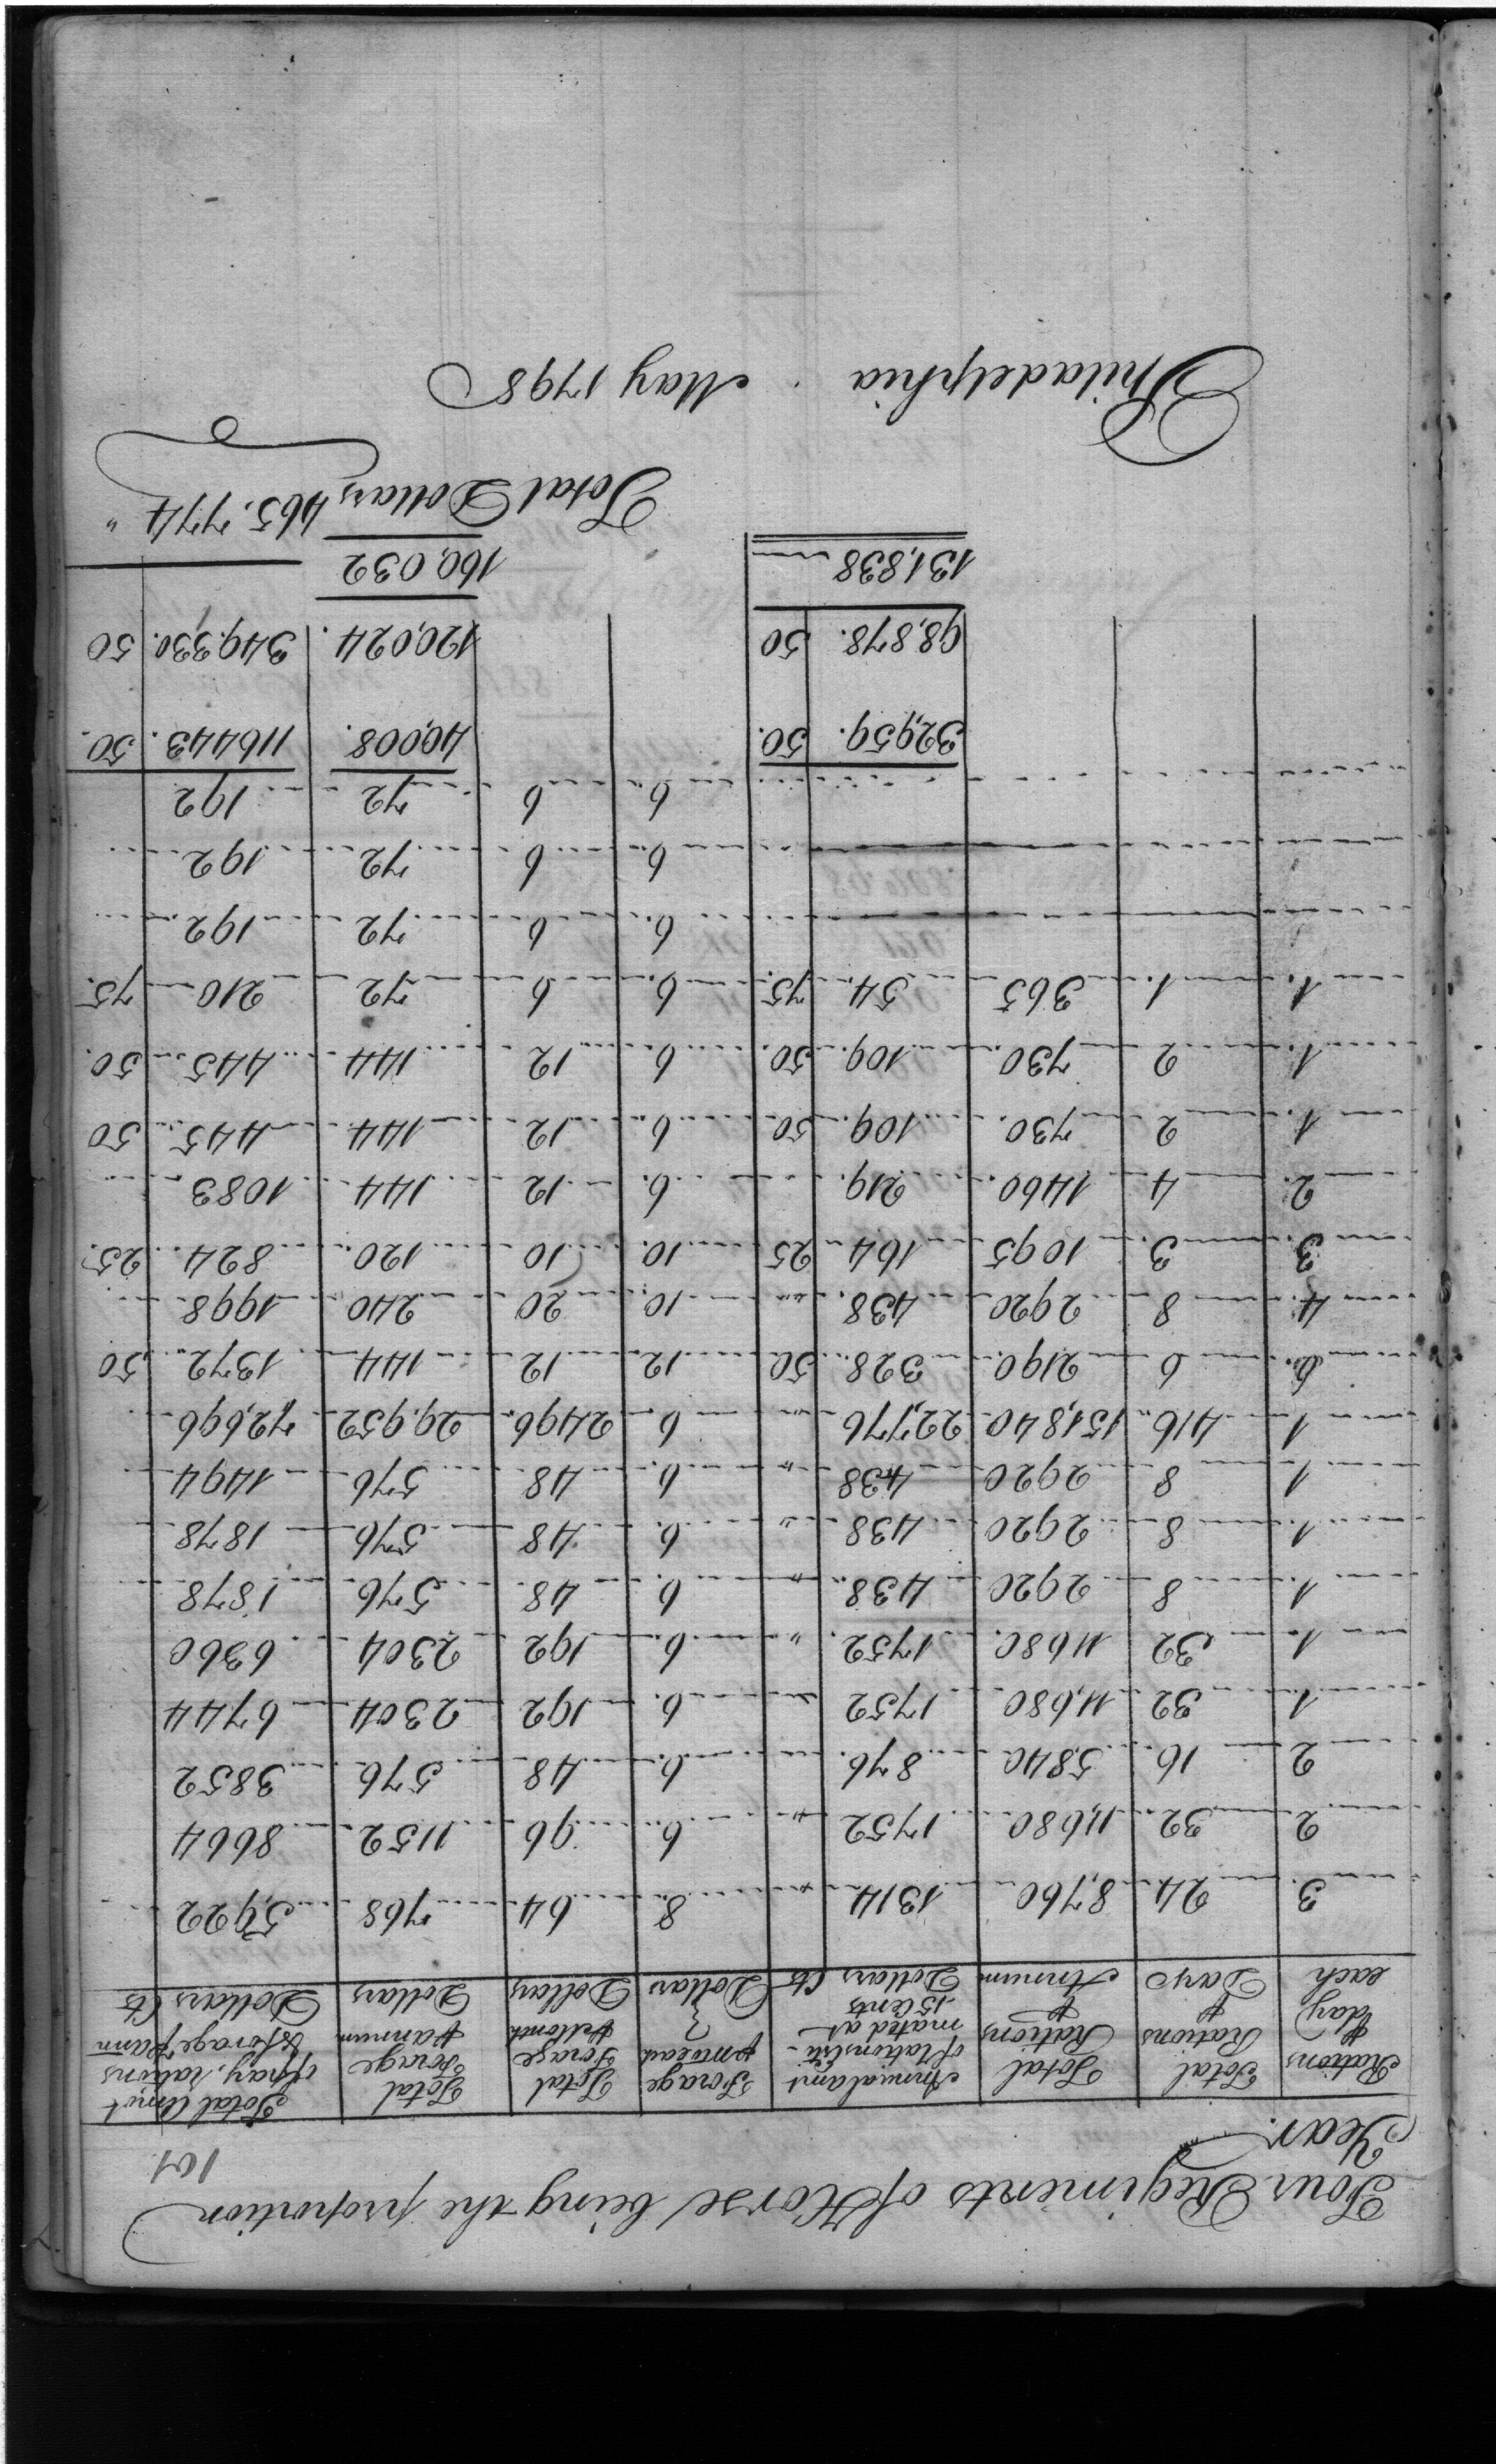 Four Regiments of Horse being the proportion
Year. 101
Rations ⅌ day each | Total Rations ⅌ Days | Total Rations ⅌ Annum | Annual amt of Rations esti-mated at 15 Cents Dollars Cts | Forage p month Dollars | Total Forage ⅌ Month Dollars | Total Forage ⅌ annum Dollars | Total Amot of pay, rations & forage ⅌ ann Dollars Cts
3 24 8,760 1314 " 8 64 768 5,922
2 32 11,680 1752 " 6 96 1152 8664
2 16 5,840 876 6 48 576 3852
1 32 11,680 1752 6 192 2304 6744
1 32 11680 1752 " 6 192 2304 6360
1 8 2920 438 " 6 48 576 1878
1 8 2920 438 " 6 48 576 1878
1 8 2920 438 " 6 48 576 1494
1 416 151,840 22,776 " 6 2496 29,952 72,696
6 6 2190 328 50 12 12 144 1372 50
4 8 2920 438 " 10 20 240 1998
3 3 1095 164 25 10 10 120 824 25
2 4 1460 219 6 12 144 1083
1 2 730 109 50 6 12 144 445 50
1 2 730 109 50 6 12 144 445 50
1 1 365 54 75 6 6 72 210 75
6 6 72 192
6 6 72 192
6 6 72 192
32,959 50 40,008 116443 50
98,878 50 120,024 349,330 50
131,838 160,032
Total Dollars, 465,774 "
Philadelphia . May 1798